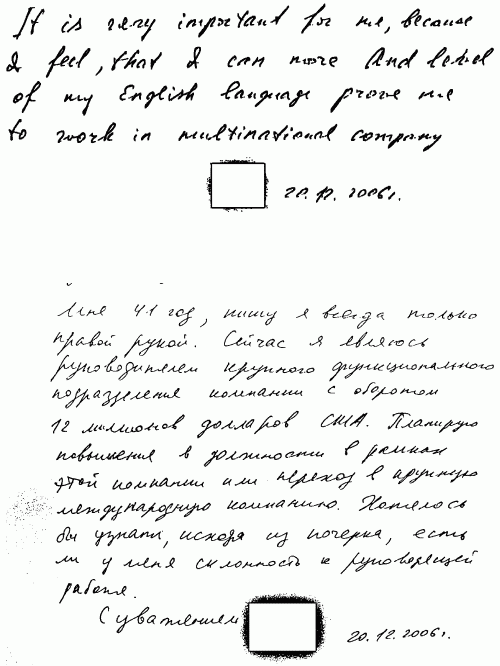 It is very important for me, because
I feel, that I can more And level
of my English language prove me
to work in multinational company
20. 12. 2006г.
Мне 41 год, пишу я всегда только
правой рукой. Сейчас я являюсь
руководителем крупного функционального
подразделения компании с оборотом
12 миллионов долларов США. Планирую
повышения в должности в рамках
этой компании или переход в крупную
международную компанию. Хотелось
бы узнать, исходя из почерка, есть
ли у меня склонность к руководящей
работе.
С уважением
20.12.2006г.